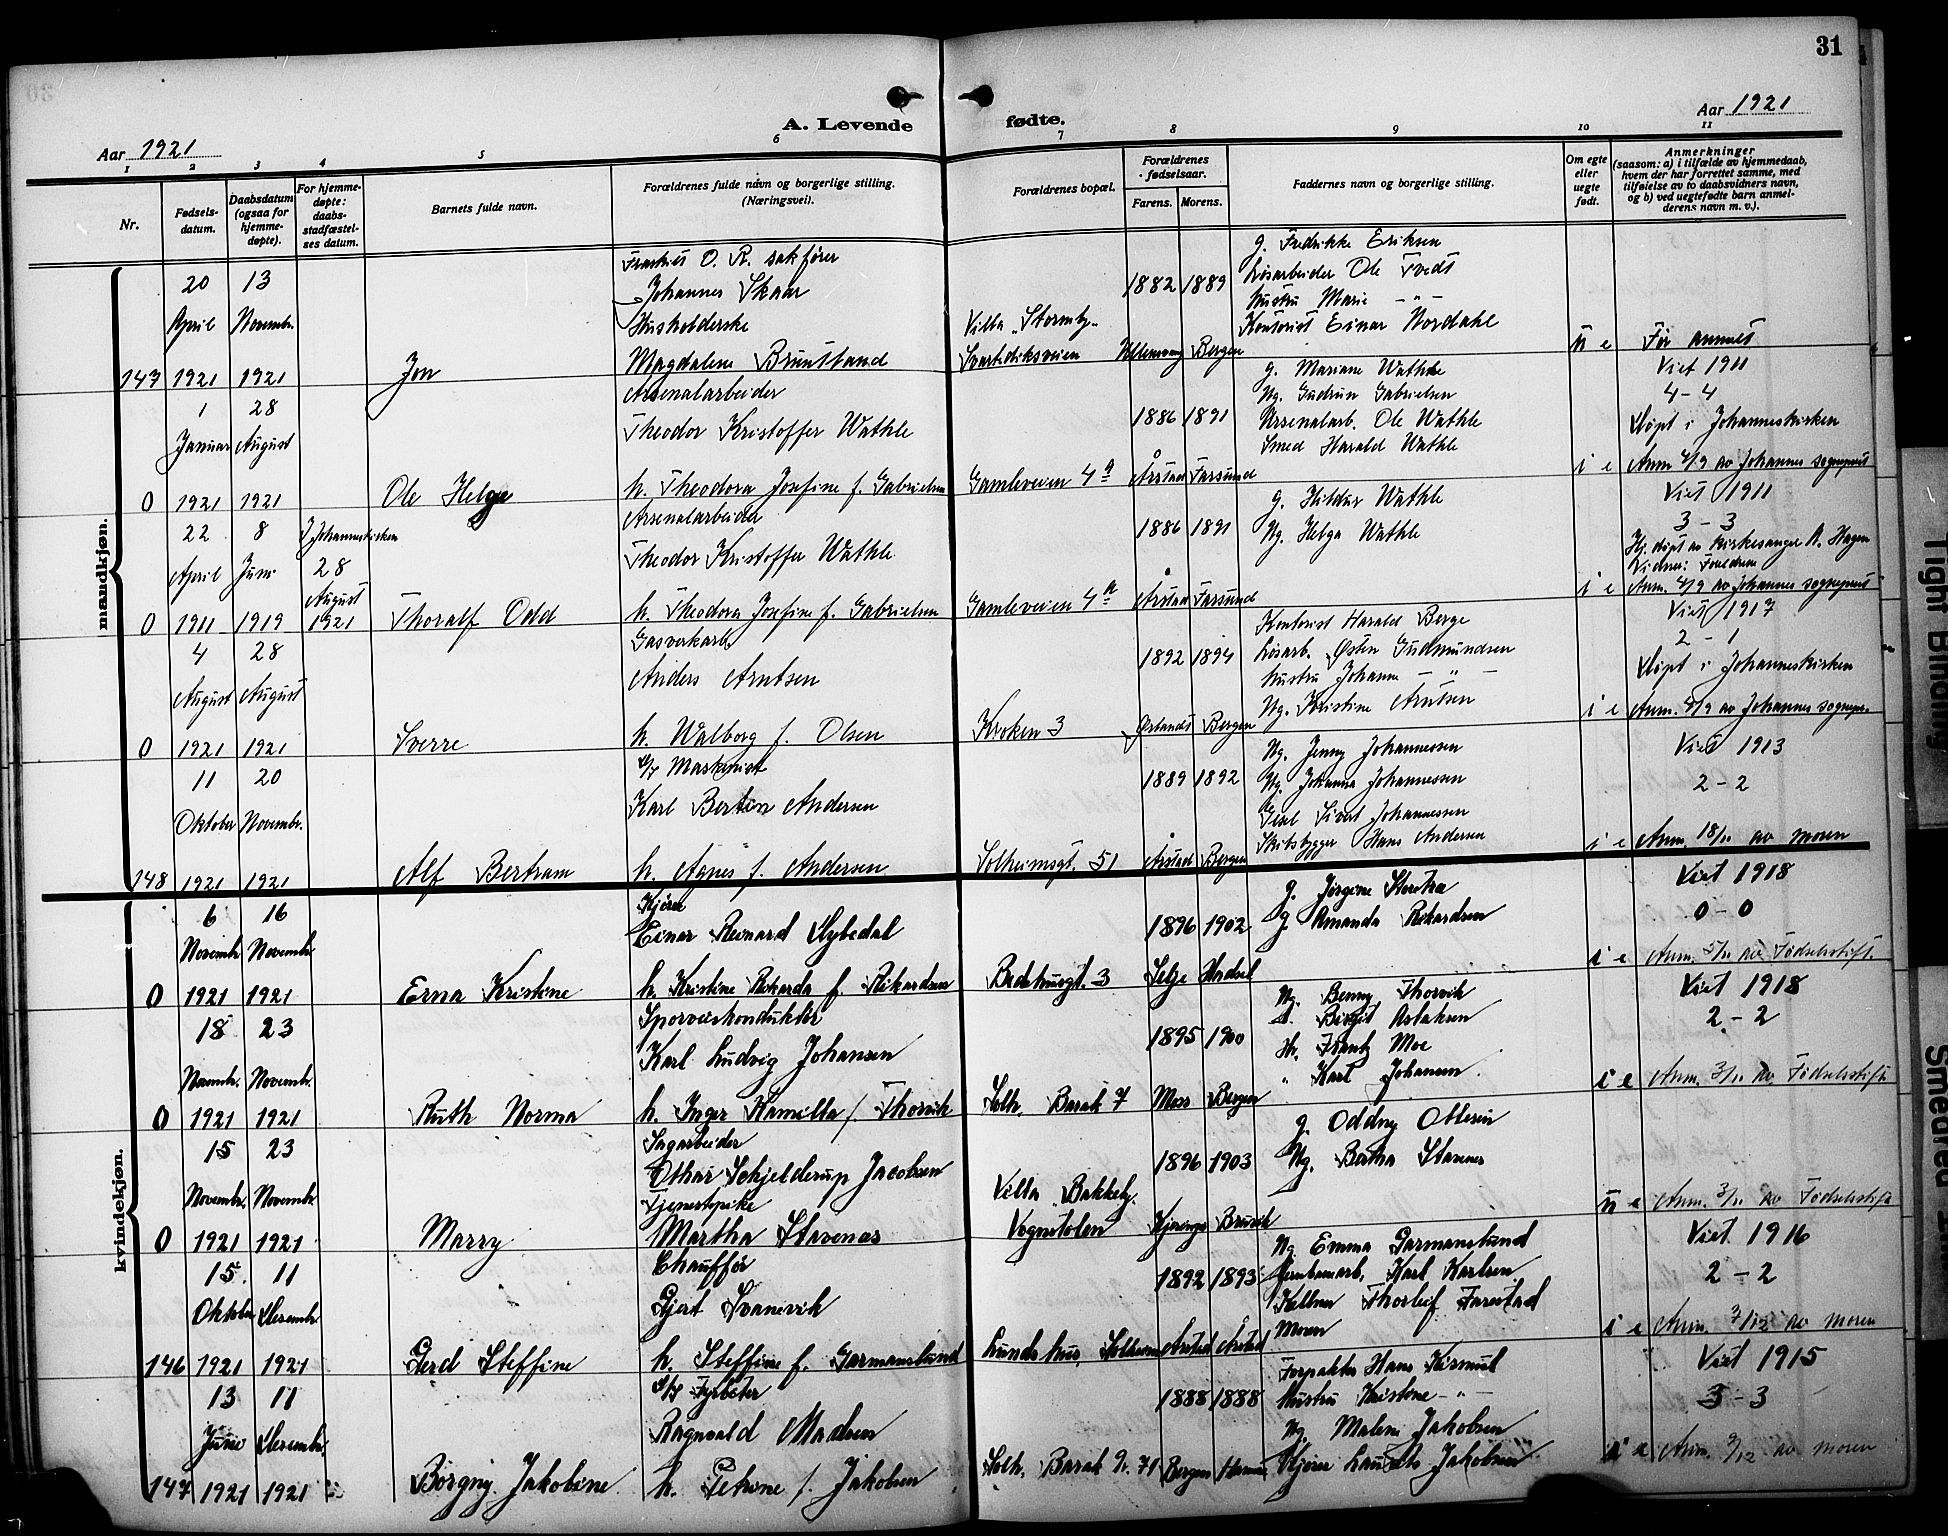 31
A. Levende fødte.
Aar 1921
Aar 1921
1 2 3 4 5 6 7 8 9 10 11
Nr.
Fødsels-
datum.
Daabsdatum
(ogsaa for
hjemme-
døpte).
For hjemme-
døpte:
daabs-
stadfæstel-
ses datum.
Barnets fulde navn.
Forældrenes fulde navn og borgerlige stilling.
(Næringsvei).
Forældrenes bopæl.
Forældrenes
fødselsaar.
Farens. Morens.
Faddernes navn og borgerlige stilling.
Om egte
eller
uegte
født.
Anmerkninger
(saasom: a) i tilfælde av hjemmedaab,
hvem der har forrettet samme, med
tilføielse av to daabsvidners navn,
og b) ved uegtefødte barn anmel-
derens navn m. v.).
mandkjøn.
O. R. sakfører
20 13 Johannes Skaar 1882 1889
April Novembr. Husholderske Villa "Stormby"
143 1921 1921 Jon Magdalene Brunstand Svartediksveien Ullensvang Bergen u e
g. Fredrikke Eriksen
Løsarbeider Ole Tvedt
Hustru Marie - " -
Kontorist Einar Nordahl
Før annet
Arsenalarbeider
1 28 1886 1891
Januar August Theodor Kristoffer Wathle
0 1921 1921 Ole Helge h. Theodora Josefine f. Gabrielsen Gamleveien 4 a Årstad Farsund i e
g. Mariane Wathle
Ug. Gudrun Gabrielsen
Arsenalarb. Ole Wathle
Smed Harald Wathle
Viet 1911
4 - 4
Døpt i Johanneskirken
Anm 4/9 av Johannes sogneprest
Arsenalarbeider
22 8 I Johanneskirken 1886 1891
April Juni 28 Theodor Kristoffer Wathle
August
0 1911 1919 1921 Thoralf Odd h. Theodora Josefine f. Gabrielsen Gamleveien 4 a Årstad Farsund i e
g. Hildur Wathle
Ug. Helga Wathle
Viet 1911
3 - 3
Hj. døpt av kirkesanger A. Hagen
Vidner: Foreldrene
Anm. 4/9 av Johannes sogneprest
Gasverkarb.
4 28 Anders Arntsen 1892 1894
August August
0 1921 1921 Sverre h. Walborg f. Olsen Kroken 3 Ørlandet Bergen i e
Kontorist Harald Berge
Løsarb. Østen Gudmundsen
Hustru Johanne - " -
Ug. Kristine Arntsen
Viet 1917
2 - 1
Døpt i Johanneskirken
Anm. 4/9 av Johannes sognepr.
D/S Maskinist
11 20 Karl Bertin Andersen 1889 1892
Oktober Novembr.
148 1921 1921 Alf Bertram h. Agnes f. Andersen Solheimsgt. 51 Årstad Bergen i e
Ug. Jenny Johannessen
Ug. Johanna Johannessen
Sivert Johannessen
Skibsbygger Hans Andersen
Viet 1913
2 - 2
Anm. 18/11 av moren
kvindekjøn.
Kjører
6 16 Einar Reinard Dybedal 1896 1902
Novembr. Novembr.
0 1921 1921 Erna Kristine h. Kristine Rikarda f. Rikardsen Bedehusgt. 3 Selje Hadsel i e
g. Jørgine
g. Amanda Rikardsen
Viet 1918
0 - 0
Anm. 5/11 av Fødselsstift.
Sporveiskonduktør
18 23 Karl Ludvig Johansen 1895 1900
Novembr. Novembr.
0 1921 1921 Ruth Norma h. Inger Kamilla f. Thorvik Solh. Barak 7 Moss Bergen i e
Ug. Benny Thorvik
Birgit Aslaksen
Hr. Frantz Moe
" Karl Johansen.
Viet 1918
2 - 2
Anm. 3/11 av Fødselsstift.
Sagarbeider
15 23 Othar Schjelderup Jacobsen 1896 1903
Novembr. Novembr. Tjenestepike Villa "Bakkeby"
0 1921 1921 Marry Martha Stavenes Vognstolen Kjerringø Bruvik u e
g. Oddny Ottesen
Ug. Bertha Stavenes
Anm. 3/11 av Fødselsstift
Chauffør
15 11 Gjert Svanevik 1892 1893
Oktober Decembr.
146 1921 1921 Gerd Steffine h. Steffine f. Garmanslund Lunds hus, Solheim Årstad Årstad i e
Ug. Emma Garmanslund
Jernbanearb. Karl Karlsen
Kellner Thorleif Farestad
Moren
Viet 1916
2 - 2
Anm. 7/12 av moren
D/S Fyrbøter
13 11 Ragnvald Madsen 1888 1888
June Decembr.
147 1921 1921 Borgny Jakobine h. Petrine f. Jakobsen Solh. Barak 9. 71 Bergen i e
Forpakter Hans
Hustru Kristine - " -
Ug. Malene Jakobsen
Kjører Lauritz Jakobsen
Viet 1915
3 - 3
Anm. 9/12 av moren
Tight Binding